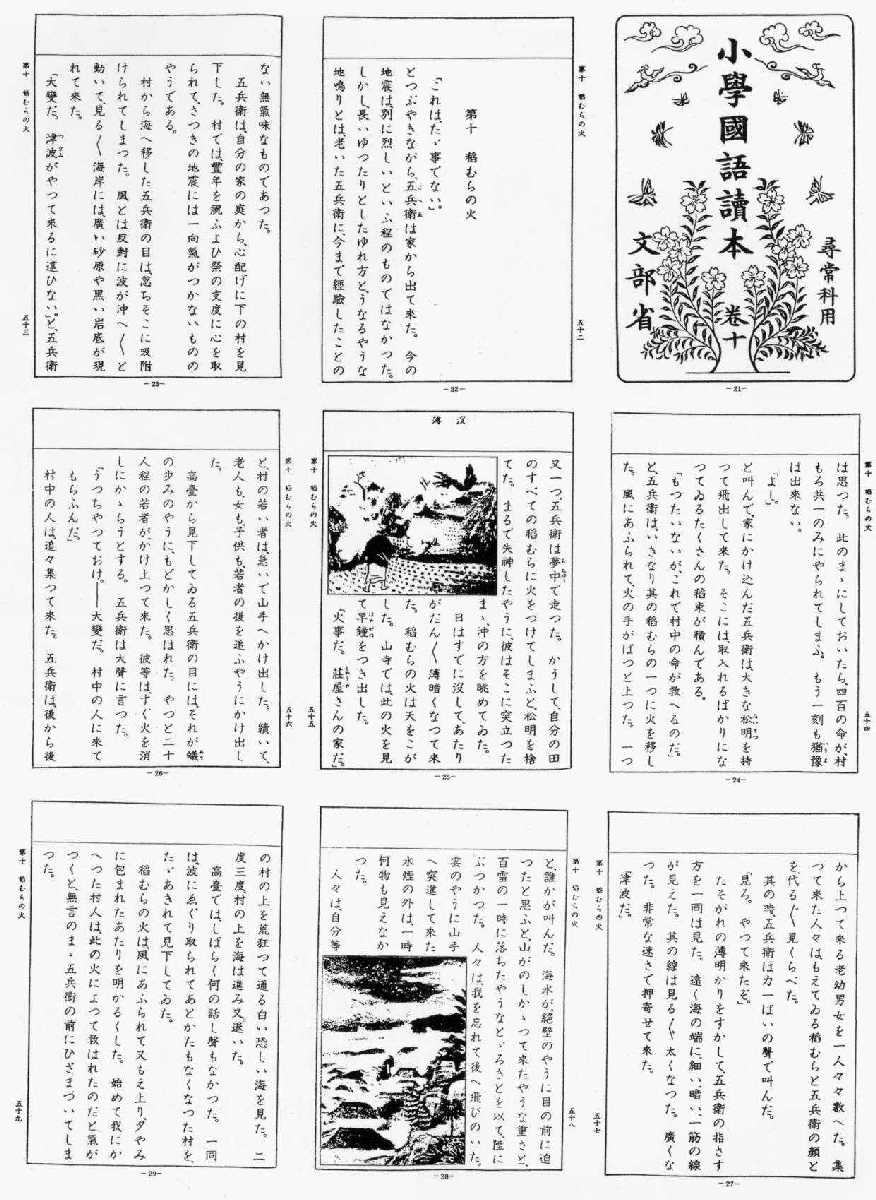 尋常科用
小學國語讀本 卷十
文部省
—21—
第十 稻むらの火
五十二
第十 稻むらの火
「これは、たゞ事でない。」
とつぶやきながら、五兵衞は家から出て來た。今の
地震は、別に烈しいといふ程のものではなかつた。
しかし、長いゆつたりとしたゆれ方と、うなるやうな
地鳴りとは、老いた五兵衞に、今まで經驗したことの
—22—
ない無氣味なものであつた。
五兵衞は、自分の家の庭から、心配げに下の村を見
下した。村では、豐年を祝ふよひ祭の支度に心を取
られて、さつきの地震には一向氣がつかないものの
やうである。
村から海へ移した五兵衞の目は、忽ちそこに吸附
けられてしまつた。風とは反對に波が沖へ〱と
動いて、見る〱海岸には、廣い砂原や黑い岩底が現
れて來た。
「大變だ。津波がやつて來るに違ひない。」と、五兵衞
第十 稻むらの火
五十三
—23—
第十 稻むらの火
五十四
は思つた。此のまゝにしておいたら、四百の命が、村
もろ共一のみにやられてしまふ。もう一刻も猶豫
は出來ない。
「よし。」
と叫んで、家にかけ込んだ五兵衞は、大きな松明を持
つて飛出して來た。そこには、取入れるばかりにな
つてゐるたくさんの稻束が積んである。
「もつたいないが、これで村中の命が救へるのだ。」
と、五兵衞は、いきなり其の稻むらの一つに火を移し
た。風にあふられて、火の手がぱつと上つた。一つ
—24—
又一つ、五兵衞は夢中で走つた。かうして、自分の田
のすべての稻むらに火をつけてしまふと、松明を捨
てた。まるで失神したやうに、彼はそこに突立つた
まゝ、沖の方を眺めてゐた。
日はすでに沒して、あたり
がだん〱薄暗くなつて來
た。稻むらの火は天をこが
した。山寺では、此の火を見
て早鐘をつき出した。
「火事だ。莊屋さんの家だ。」
第十 稻むらの火
五十五
—25—
第十 稻むらの火
五十六
と、村の若い者は、急いで山手へかけ出した。續いて、
老人も、女も、子供も、若者の後を追ふやうにかけ出し
た。
高臺から見下してゐる五兵衞の目には、それが蟻
の歩みのやうに、もどかしく思はれた。やつと二十
人程の若者が、かけ上つて來た。彼等は、すぐ火を消
しにかゝらうとする。五兵衞は大聲に言つた。
「うつちやつておけ。——大變だ。村中の人に來て
もらふんだ。」
村中の人は、追々集つて來た。五兵衞は、後から後
—26—
から上つて來る老幼男女を一人々々數へた。集
つて來た人々は、もえてゐる稻むらと五兵衞の顏と
を、代る〲見くらべた。
其の時、五兵衞は力一ぱいの聲で叫んだ。
「見ろ。やつて來たぞ。」
たそがれの薄明かりをすかして、五兵衞の指さす
方を一同は見た。遠く海の端に、細い、暗い、一筋の線
が見えた。其の線は見る〱太くなつた。廣くな
つた。非常な速さで押寄せて來た。
「津波だ。」
第十 稻むらの火
五十七
—27—
第十 稻むらの火
五十八
と、誰かが叫んだ。海水が、絶壁のやうに目の前に迫
つたと思ふと、山がのしかゝつて來たやうな重さと、
百雷の一時に落ちたやうなとゞろきとを以て、陸に
ぶつかつた。人々は、我を忘れて後へ飛びのいた。
雲のやうに山手
へ突進して來た
水煙の外は、一時
何物も見えなか
つた。
人々は、自分等
—28—
の村の上を荒狂つて通る白い恐しい海を見た。二
度三度、村の上を海は進み又退いた。
高臺では、しばらく何の話し聲もなかつた。一同
は、波にゑぐり取られてあとかたもなくなつた村を、
たゞあきれて見下してゐた。
稻むらの火は、風にあふられて又もえ上り、夕やみ
に包まれたあたりを明かるくした。始めて我にか
へつた村人は、此の火によつて救はれたのだと氣が
つくと、無言のまゝ五兵衞の前にひざまづいてしま
つた。
第十 稻むらの火
五十九
—29—